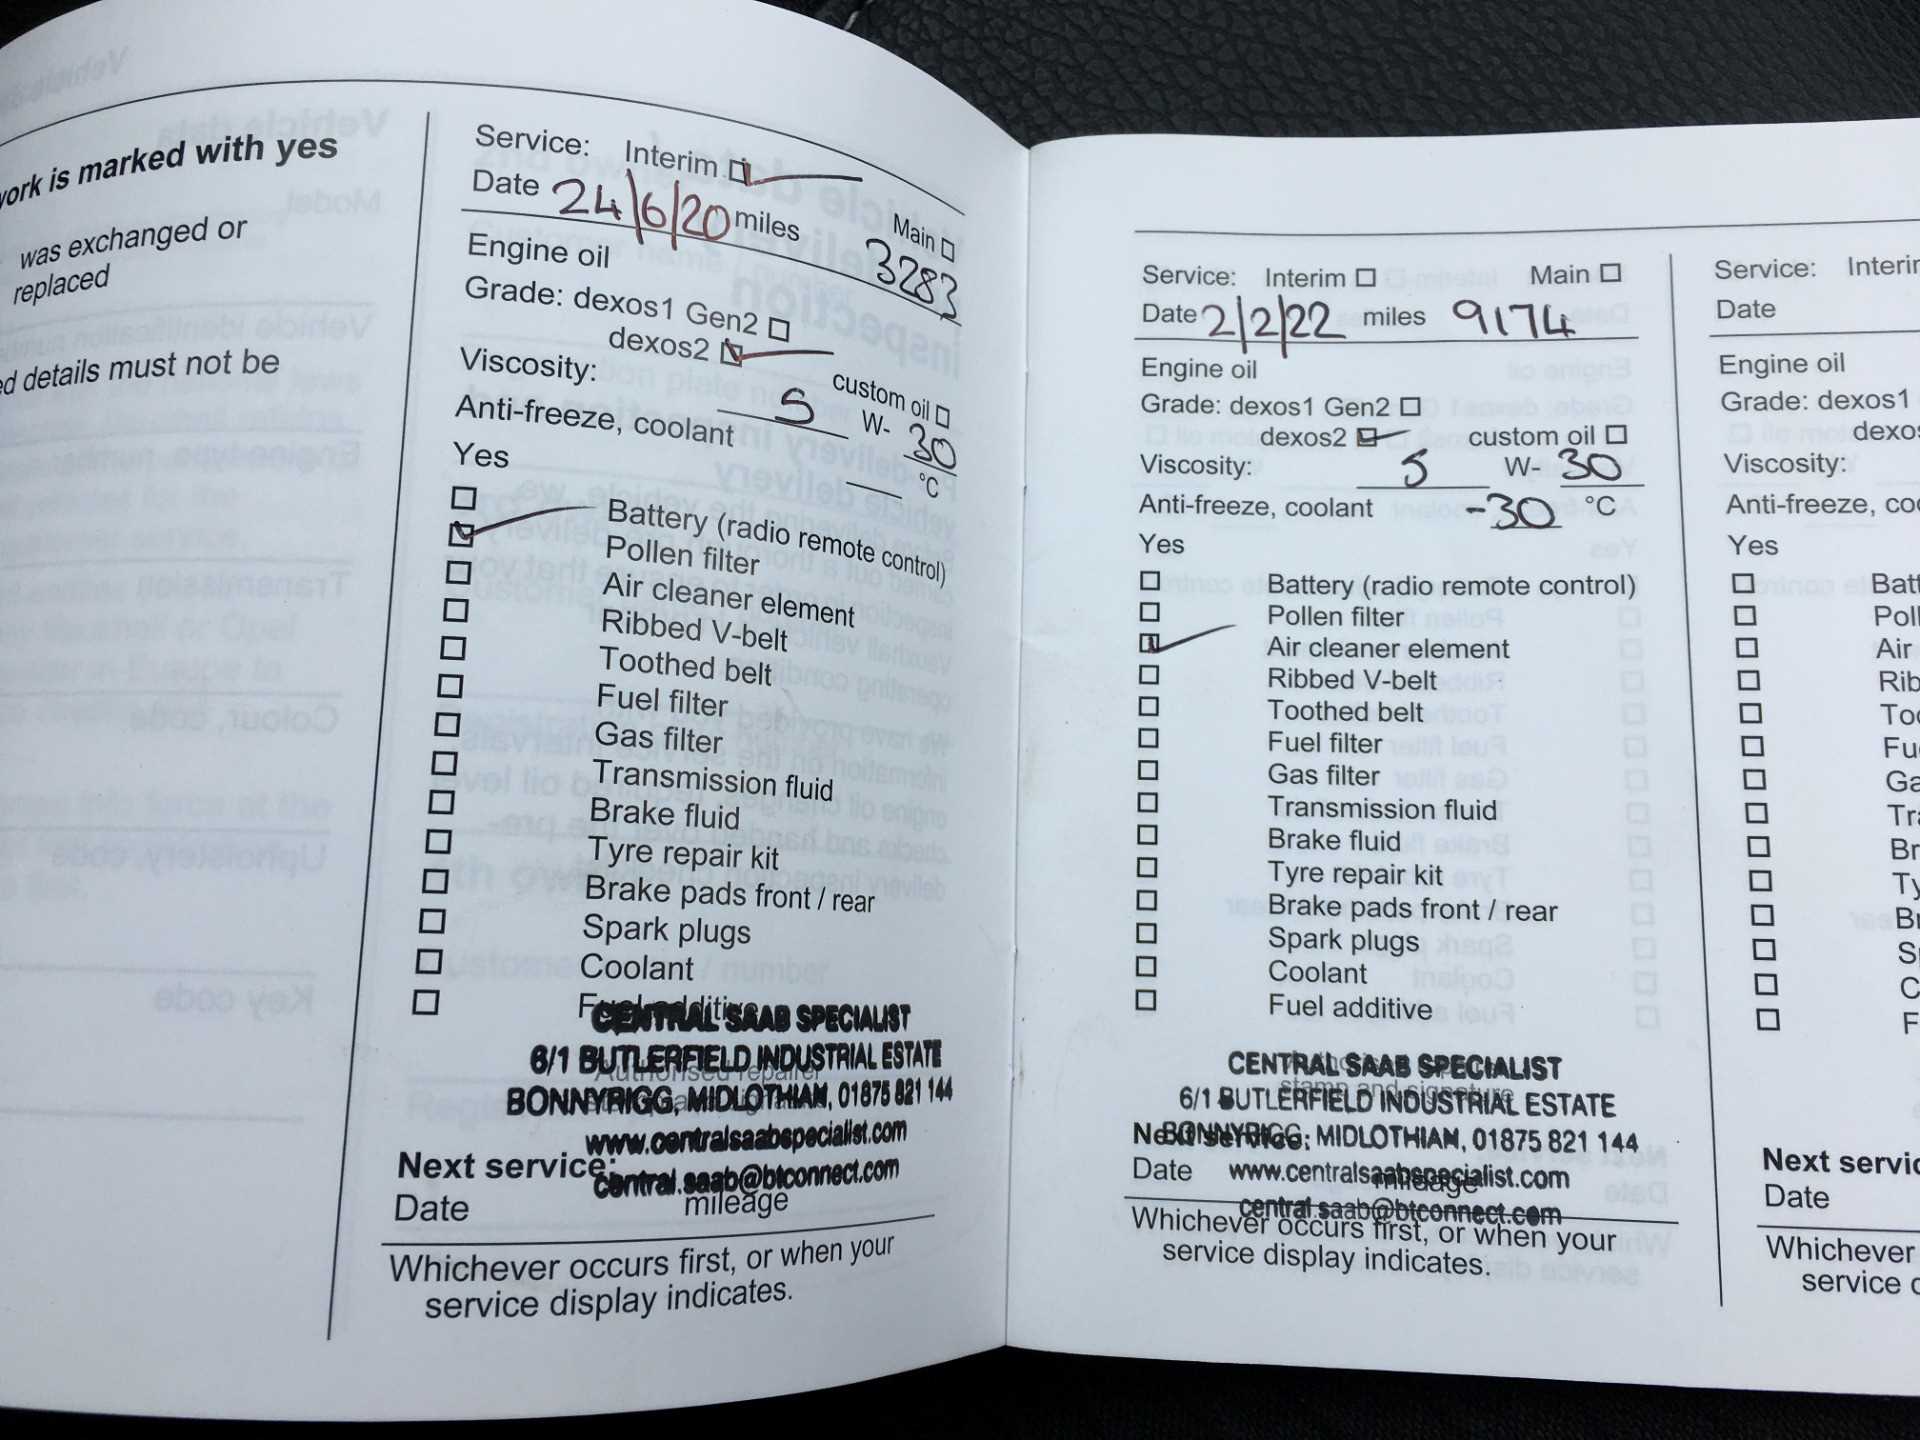 work is marked with yes
was exchanged or
replaced
ed details must not be
Service: Interim Main
Date 24/6/20 miles 3283
Engine oil
Grade: dexos1 Gen2
dexos2 custom oil
Viscosity: 5 W- 30
Anti-freeze, coolant °C
Yes
Battery (radio remote control)
Pollen filter
Air cleaner element
Ribbed V-belt
Toothed belt
Fuel filter
Gas filter
Transmission fluid
Brake fluid
Tyre repair kit
Brake pads front / rear
Spark plugs
Coolant
Fuel additive
CENTRAL SAAB SPECIALIST
6/1 BUTLERFIELD INDUSTRIAL ESTATE
Authorised repairer
BONNYRIGG, MIDLOTHIAN, 01875 821 144
www.centralsaabspecialist.com
Next service:
central.saab@btconnect.com
Date mileage
Whichever occurs first, or when your
service display indicates.
Service: Interim Main
Date 2/2/22 miles 9174
Engine oil
Grade: dexos1 Gen2
dexos2 custom oil
Viscosity: 5 W- 30
Anti-freeze, coolant -30 °C
Yes
Battery (radio remote control)
Pollen filter
Air cleaner element
Ribbed V-belt
Toothed belt
Fuel filter
Gas filter
Transmission fluid
Brake fluid
Tyre repair kit
Brake pads front / rear
Spark plugs
Coolant
Fuel additive
CENTRAL SAAB SPECIALIST
stamp and signature
6/1 BUTLERFIELD INDUSTRIAL ESTATE
Next service:
BONNYRIGG, MIDLOTHIAN, 01875 821 144
Date mileage
www.centralsaabspecialist.com
central.saab@btconnect.com
Whichever occurs first, or when your
service display indicates.
Service: Interim
Date
Engine oil
Grade: dexos1
dexos
Viscosity:
Anti-freeze, coo
Yes
Batt
Poll
Air
Rib
Too
Fu
Ga
Tra
Br
Ty
Br
Sp
C
F
Next servic
Date
Whichever
service d